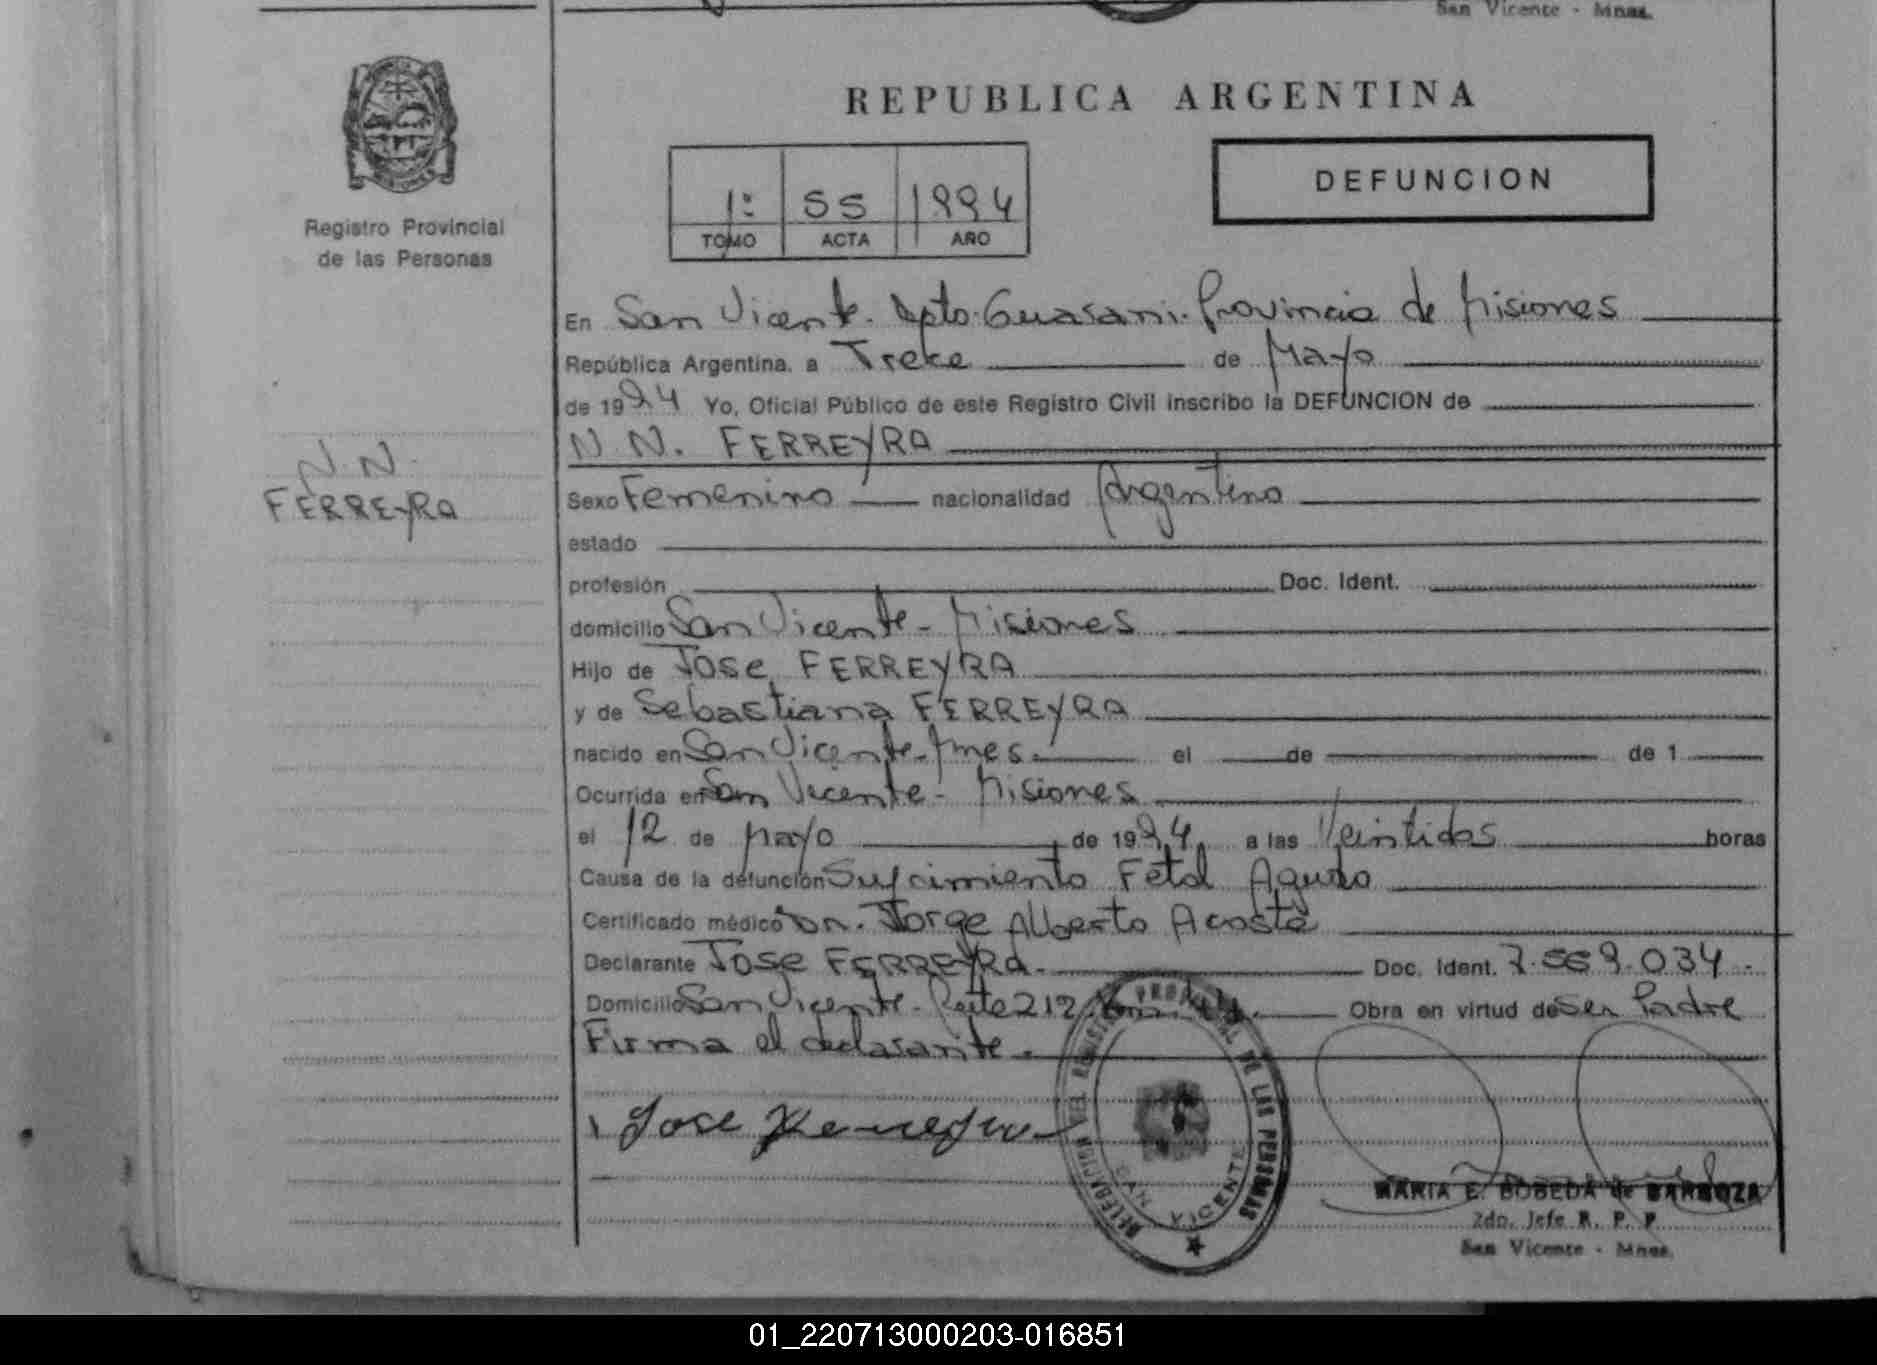 San Vicente - Mnes.
REPUBLICA ARGENTINA
1º 55 1994
TOMO ACTA AÑO
DEFUNCION
Registro Provincial
de las Personas
En San Vicente. Dpto. Guarani. Provincia de Misiones
República Argentina. a Trece de Mayo
de 1994 Yo, Oficial Público de este Registro Civil inscribo la DEFUNCION de
N.N. FERREYRA
N.N.
FERREYRA
Sexo Femenino nacionalidad Argentina
estado
profesión Doc. Ident.
domicilio San Vicente - Misiones
Hijo de Jose FERREYRA
y de Sebastiana FERREYRA
nacido en San Vicente - Mnes. el de de 1
Ocurrida en San Vicente - Misiones
el 12 de Mayo de 1994 a las Veintidos horas
Causa de la defunción Sufrimiento Fetal Agudo
Certificado médico Dr. Jorge Alberto Acosta
Declarante Jose FERREYRA. Doc. Ident. 7.569.034.
Domicilio San Vicente - Ruta 212 Km. Obra en virtud de Ser Padre
Firma el declarante.
Jose Ferreyra
DELEGACION DEL REGISTRO PROVINCIAL DE LAS PERSONAS
SAN VICENTE
MARIA E. BOBEDA de BARBOZA
2do. Jefe R. P. P.
San Vicente - Mnes.
01_220713000203-016851